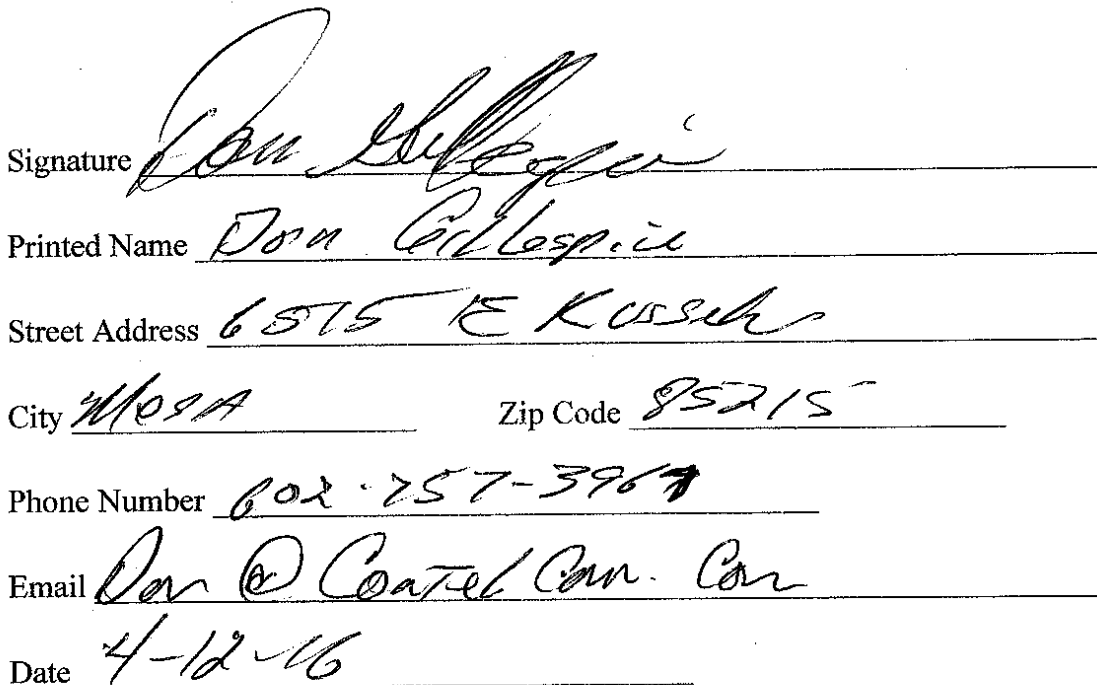 Signature Don Gillespie
Printed Name Don Gillespie
Street Address 6515 E
City Mesa Zip Code 85215
Phone Number 602-757-
Email Don @
Date 4-12-16